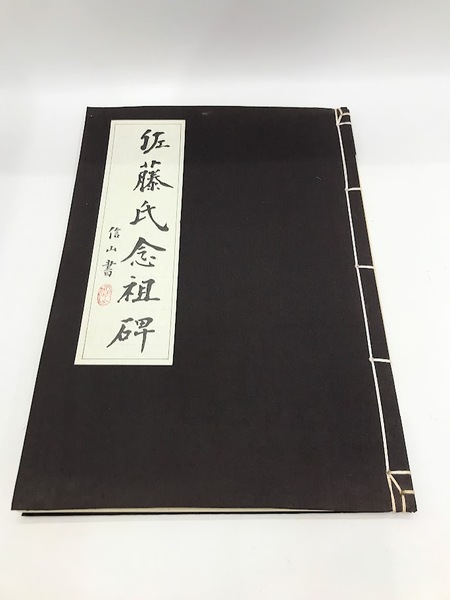 佐藤氏念祖碑
信山書